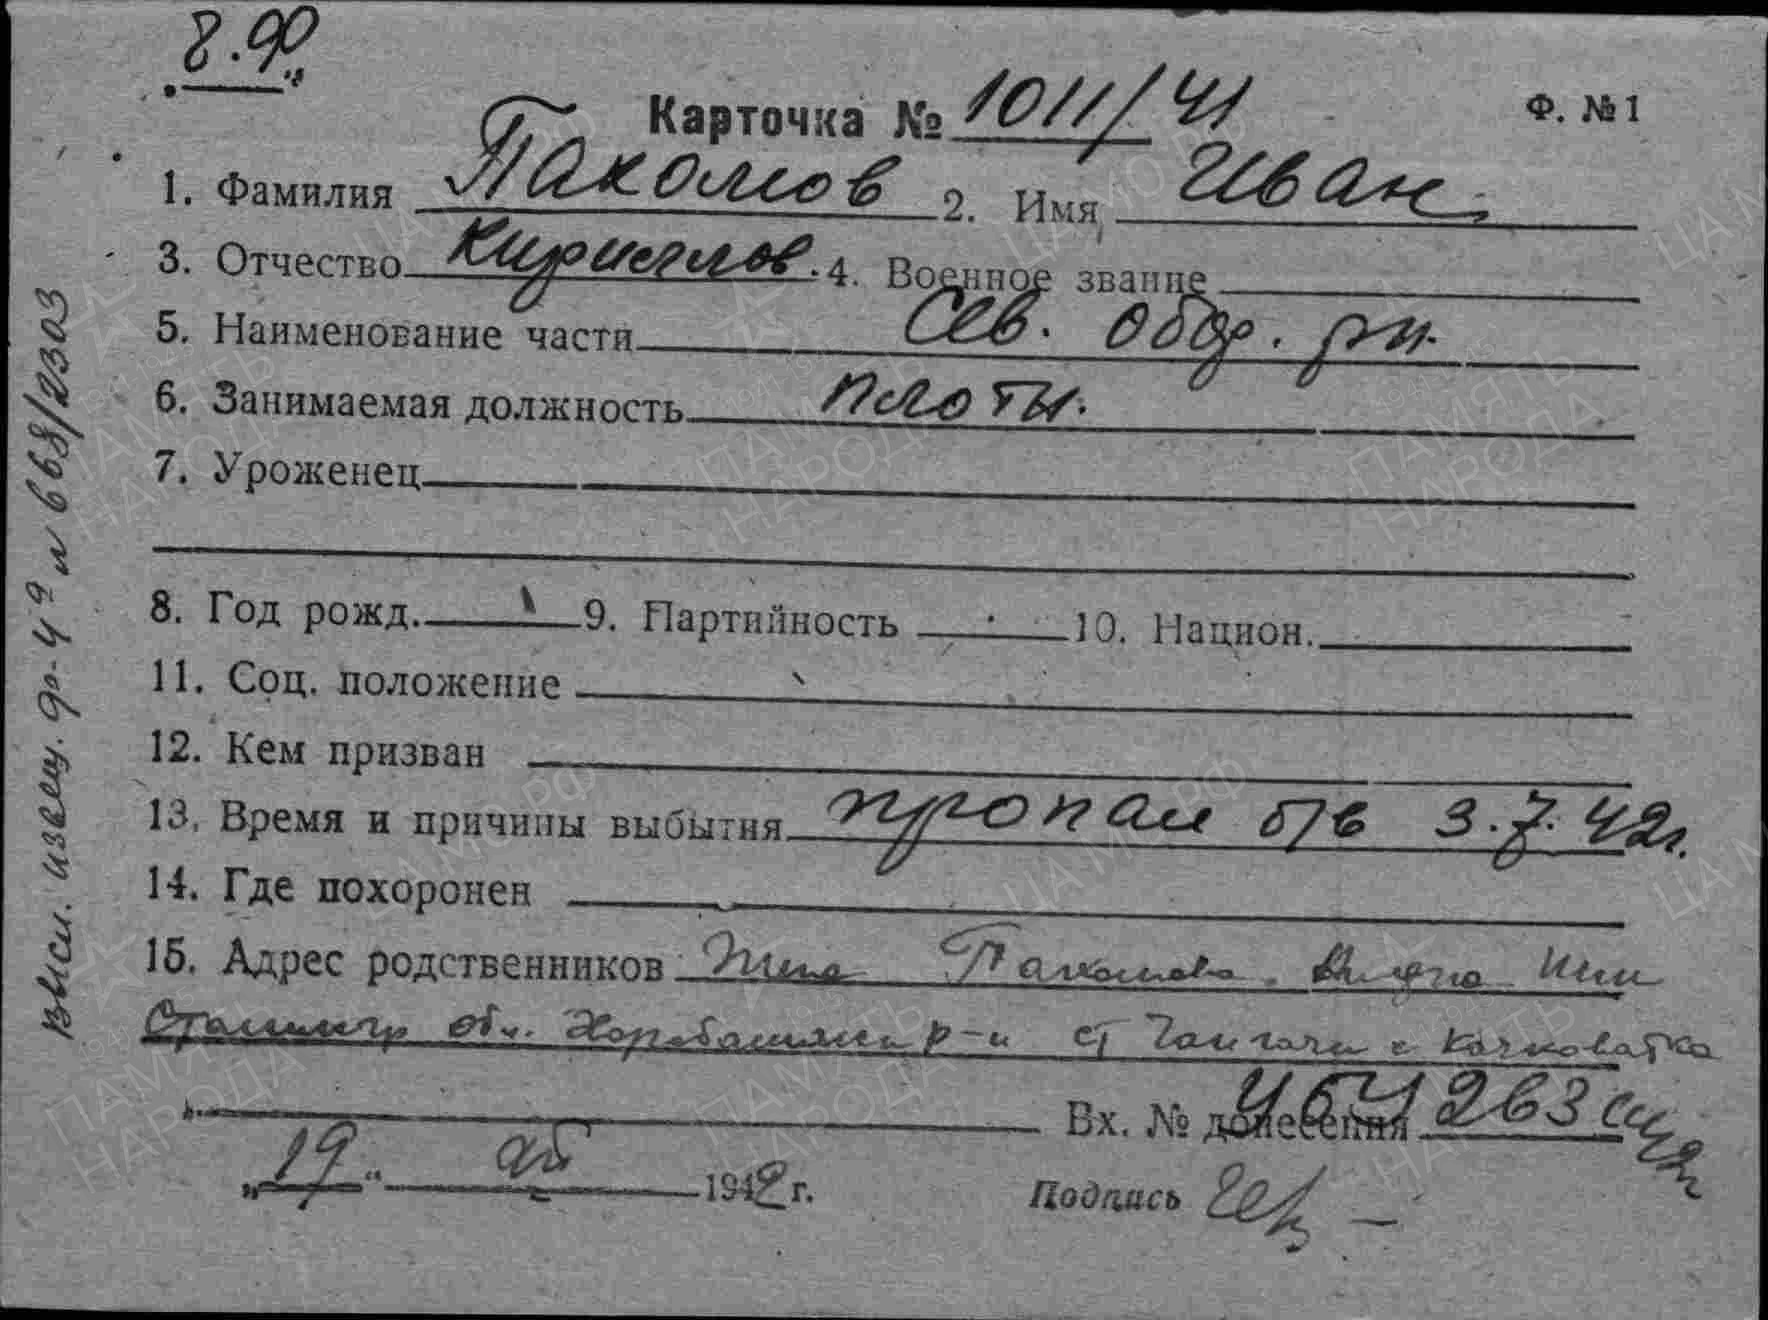 8.
Карточка № 1011/41 Ф. №1
1. Фамилия Пахомов 2. Имя Иван
3. Отчество Кириллов. 4. Военное звание
5. Наименование части Сев. обор. р-н.
6. Занимаемая должность плотн.
7. Уроженец
8. Год рожд. 9. Партийность 10. Национ.
11. Соц. положение
12. Кем призван
13. Время и причины выбытия пропал б/в 3.7.42г.
14. Где похоронен
15. Адрес родственников Жена Пахомова
Сталингр обл. Харабалинск р-н ст
Вх. № донесения
„19" 1942 г. Подпись
выс. извещ. ф-4 668/2303
ПАМЯТЬ НАРОДА
ЦА МО РФ